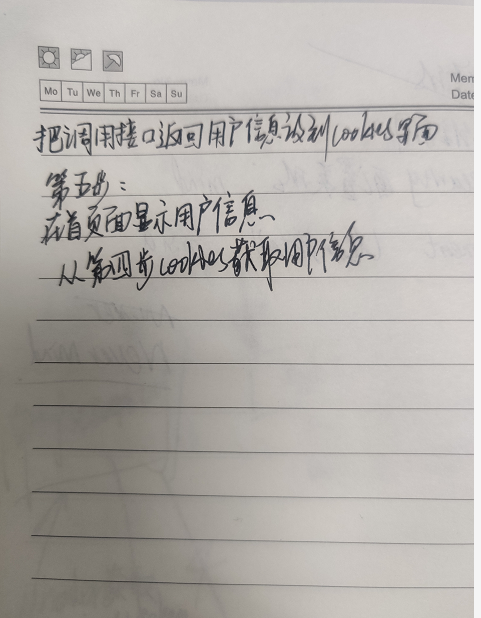 Mo Tu We Th Fr Sa Su
Mem
Date
把调用接口返回用户信息设到cookies里面
第五步:
在首页面显示用户信息
从第四步cookies获取用户信息